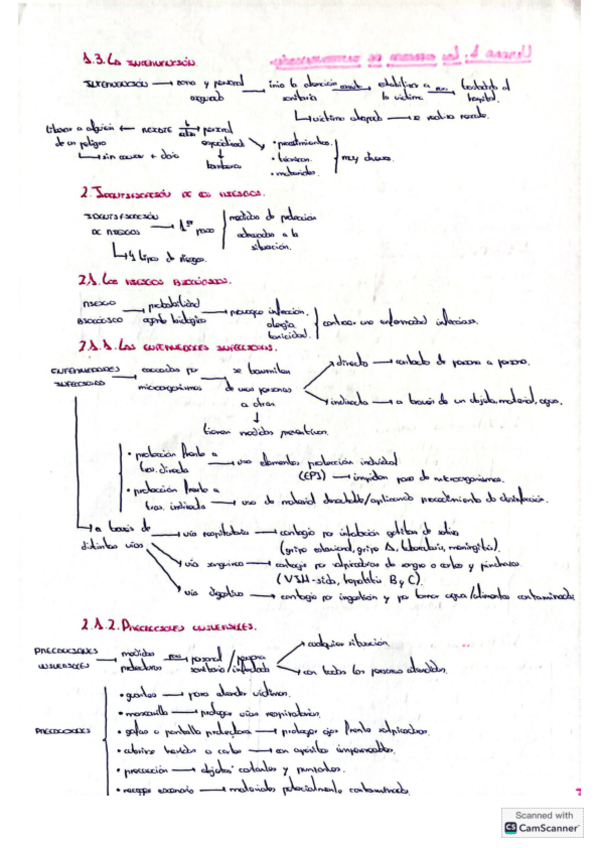 1.3. La intervención.
Intervención → zona y personal asegurado → inicio la atención sanitaria → estabilizar a la víctima → trasladarlo al hospital.
↳ víctima atrapada → se realiza rescate.
liberar a alguien de un peligro ← rescate → personal especializado
↳ sin causar + daño
↓ bomberos
• procedimientos.
• técnicas.
• materiales.
muy diversos.
2. Identificación de los riesgos.
Identificación de riesgos → 1er paso
medidas de protección adecuadas a la situación.
↳ 4 tipos de riesgos.
2.1. Los riesgos biológicos.
riesgo biológico → probabilidad agente biológico → infección, alergia, toxicidad.
contraer una enfermedad infecciosa.
2.1.1. Las enfermedades infecciosas.
enfermedades infecciosas → causadas por microorganismos → se transmiten de unas personas a otras
directa → contacto de persona a persona.
indirecta → a través de un objeto, material, agua.
↓
tienen medidas preventivas.
• protección frente a tras. directa → uso elementos protección individual
(EPI) → impiden paso de microorganismos.
• protección frente a tras. indirecta → uso de material desechable/aplicando procedimiento de desinfección.
a través de distintas vías
vía respiratoria → contagio por inhalación gotitas de saliva
(gripe estacional, gripe A, tuberculosis, meningitis).
vía sanguínea → contagio por salpicaduras de sangre o cortes y pinchazos
(VIH-sida, hepatitis B y C).
vía digestiva → contagio por ingestión y por tomar agua/alimentos contaminados
2.1.2. Precauciones universales.
precauciones universales → medidas protectoras → personal sanitario/persona infectada
cualquier situación.
con todas las personas atendidas.
precauciones
• guantes → para atender víctimas.
• mascarilla → proteger vías respiratorias.
• gafas o pantalla protectora → proteger ojos frente salpicaduras.
• cubrirse heridas o cortes → con apósitos impermeables.
• precaución → objetos cortantes y punzantes.
• recoger escenario → materiales potencialmente contaminados.
Scanned with
CS CamScanner